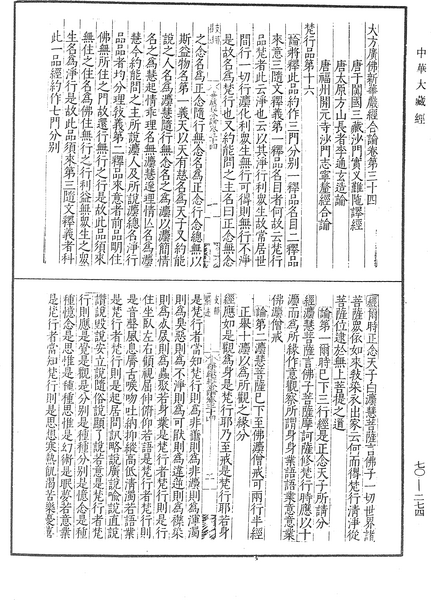 中華大藏經
大方廣佛新華嚴經合論卷第三十四
唐于闐國三藏沙門實叉難陁譯經
唐太原方山長者李通玄造論
唐福州開元寺沙門志寧釐經合論
梵行品第十六
論將釋此品約作三門分別一釋品名目二釋品
來意三隨文釋義第一釋品名目者何故云梵行
品梵者此云淨也云以其淨行利衆生故常居世
間行一切行瀍化利衆生無行可得則無行不淨
是故名為梵行也又約能問之主名曰正念無念
之念名為正念隨行無念名為正念行念總無以
斯益物名第一義天以天有慈名為天子又約能
說之人名為瀍慧隨行無念名之為瀍以瀍簡情
名之為慧起情乖理名無瀍慧達理情亾名為瀍
慧今約能問之主所說瀍人及所說瀍總名淨行
品品者均分理教義第二釋品來意者前品明住
佛無所住之門故還行無行之行是故此品須來
無住之住名為佛住無行之行利益無衆生之衆
生名為淨行是故此品須來第三隨文釋義者科
此一品經約作七門分別
經爾時正念天子白瀍慧菩薩言佛子一切世界諸
菩薩衆依如來教染衣出家云何而得梵行清淨從
菩薩位逮於無上菩提之道
論第一爾時已下三行經是正念天子所請分
經瀍慧菩薩言佛子菩薩摩訶薩修梵行時應以十
瀍而為所緣作意觀察所謂身身業語語業意意業
佛瀍僧戒
論第二瀍慧菩薩已下至佛瀍僧戒可兩行半經
正舉十瀍以為所觀之緣分
經應如是觀為身是梵行耶乃至戒是梵行耶若身
是梵行者當知梵行則為非善則為非瀍則為渾濁
則為臭惡則為不淨則為可厭則為違逆則為襍染
則為死屍則為蟲聚若身業是梵行者梵行則是行
住坐臥左右顧視屈伸俯仰若語是梵行者梵行則
是音聲風息脣舌喉吻吐納抑縱高低清濁若語業
是梵行者梵行則是起居問訊略說廣說喻說直說
讚說毀說安立說隨俗說顯了說若意是梵行者梵
行則應是覺是觀是分別是種種分別是憶念是種
種憶念是思惟是種種思惟是幻術是眠夢若意業
是梵行者當知梵行則是思想寒熱飢渴苦樂憂喜
七〇—二七四